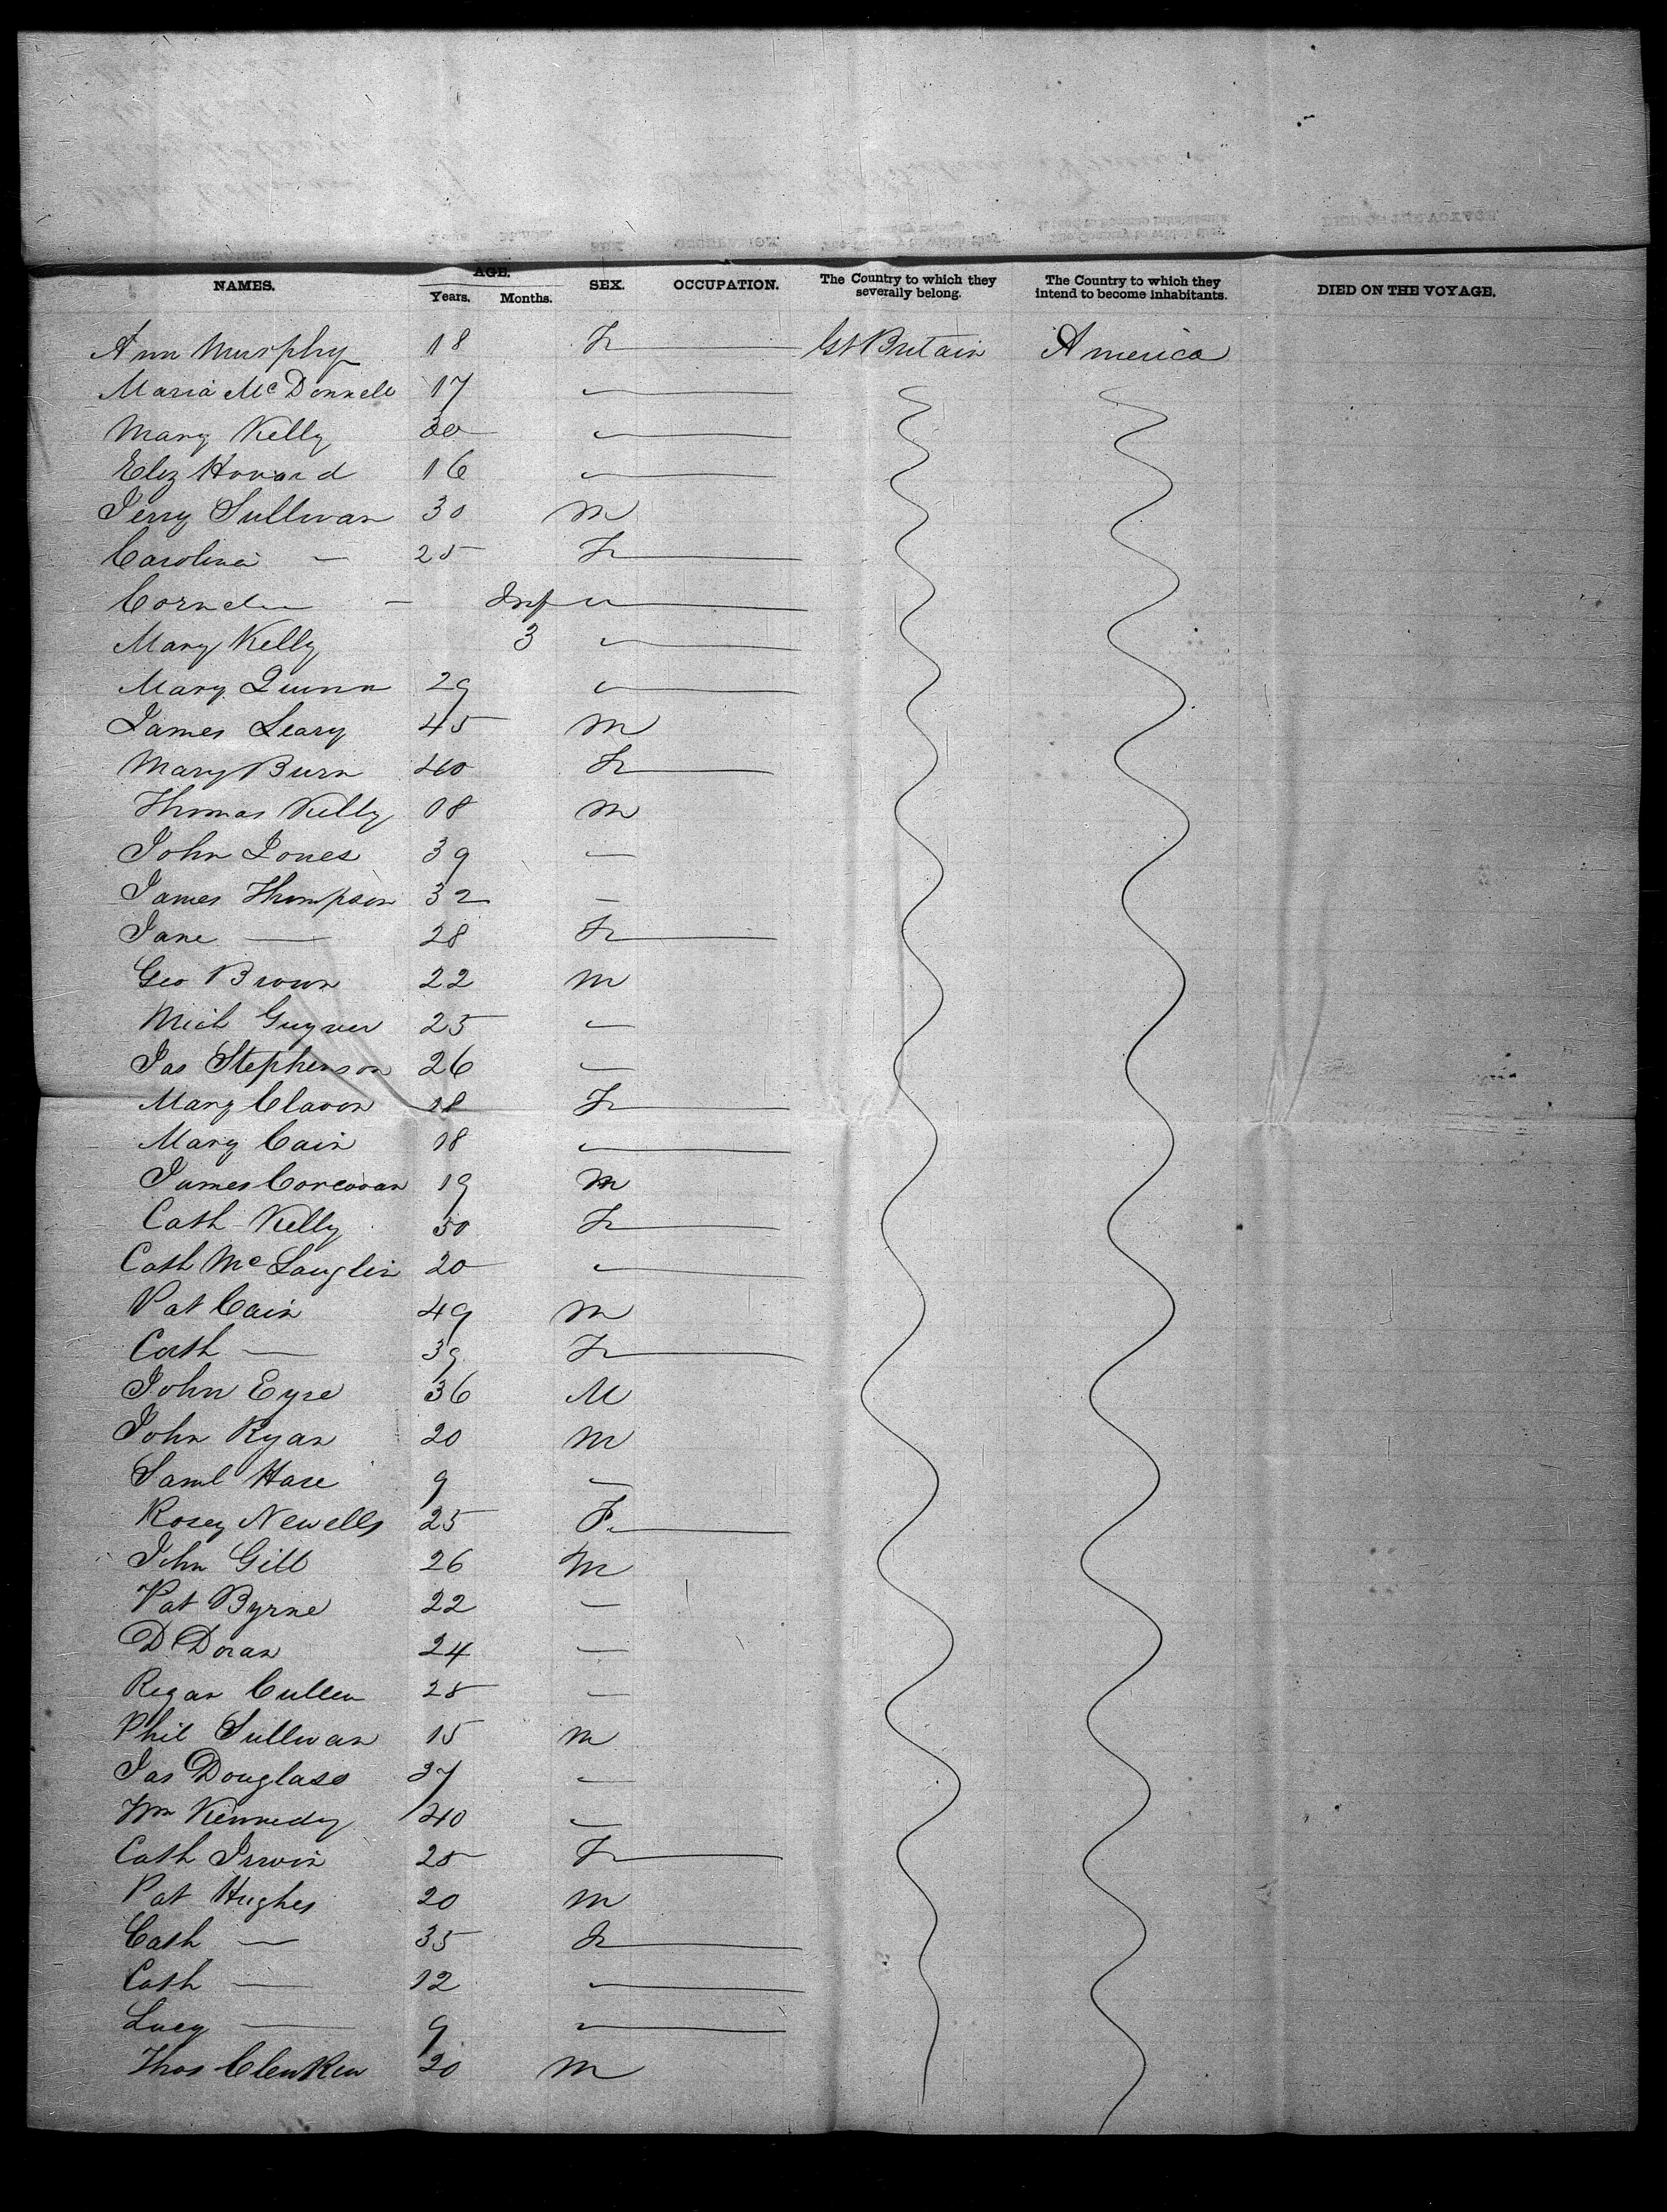 NAMES. AGE. Years. Months. SEX. OCCUPATION. The Country to which they severally belong. The Country to which they intend to become inhabitants. DIED ON THE VOYAGE.
Ann Murphy 18 F Gt Britain America
Maria McDonnell 17
Mary Kelly 30
Eliz Howard 16
Jerry Sullivan 30 M
Carolina — 25 F
— Inf
Mary Kelly 3
Mary Quinn 29
James Leary 45 M
Mary Burn 40 F
Thomas Kelly 18 M
John Jones 39 —
James Thompson 32 —
Jane — 28 F
Geo Brown 22 M
Mich 25 —
Jas Stephenson 26 —
Mary 18 F
Mary Cain 18
James Corcoran 19 M
Cath Kelly 50 F
Cath McLauglin 20
Pat Cain 49 M
Cath — 39 F
John Eyre 36 M
John Ryan 20 M
Saml Hare 9 —
Rosey Newells 25 F
John Gill 26 M
Pat Byrne 22 —
D Doran 24 —
Regan Cullen 25 —
Phil Sullivan 15 M
Jas Douglass 37 —
Wm Kennedy 40 —
Cath Irwin 25 F
Pat Hughes 20 M
Cath — 35 F
Cath — 12
Lucy — 9
Thos 20 M